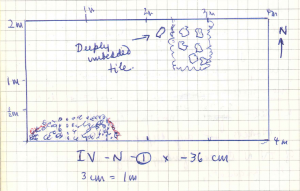 1m 2m 3m 4m
2m
N
Deeply
imbedded
tile.
1m
½m
4m
IV - N - ① x -36 cm
3 cm = 1m